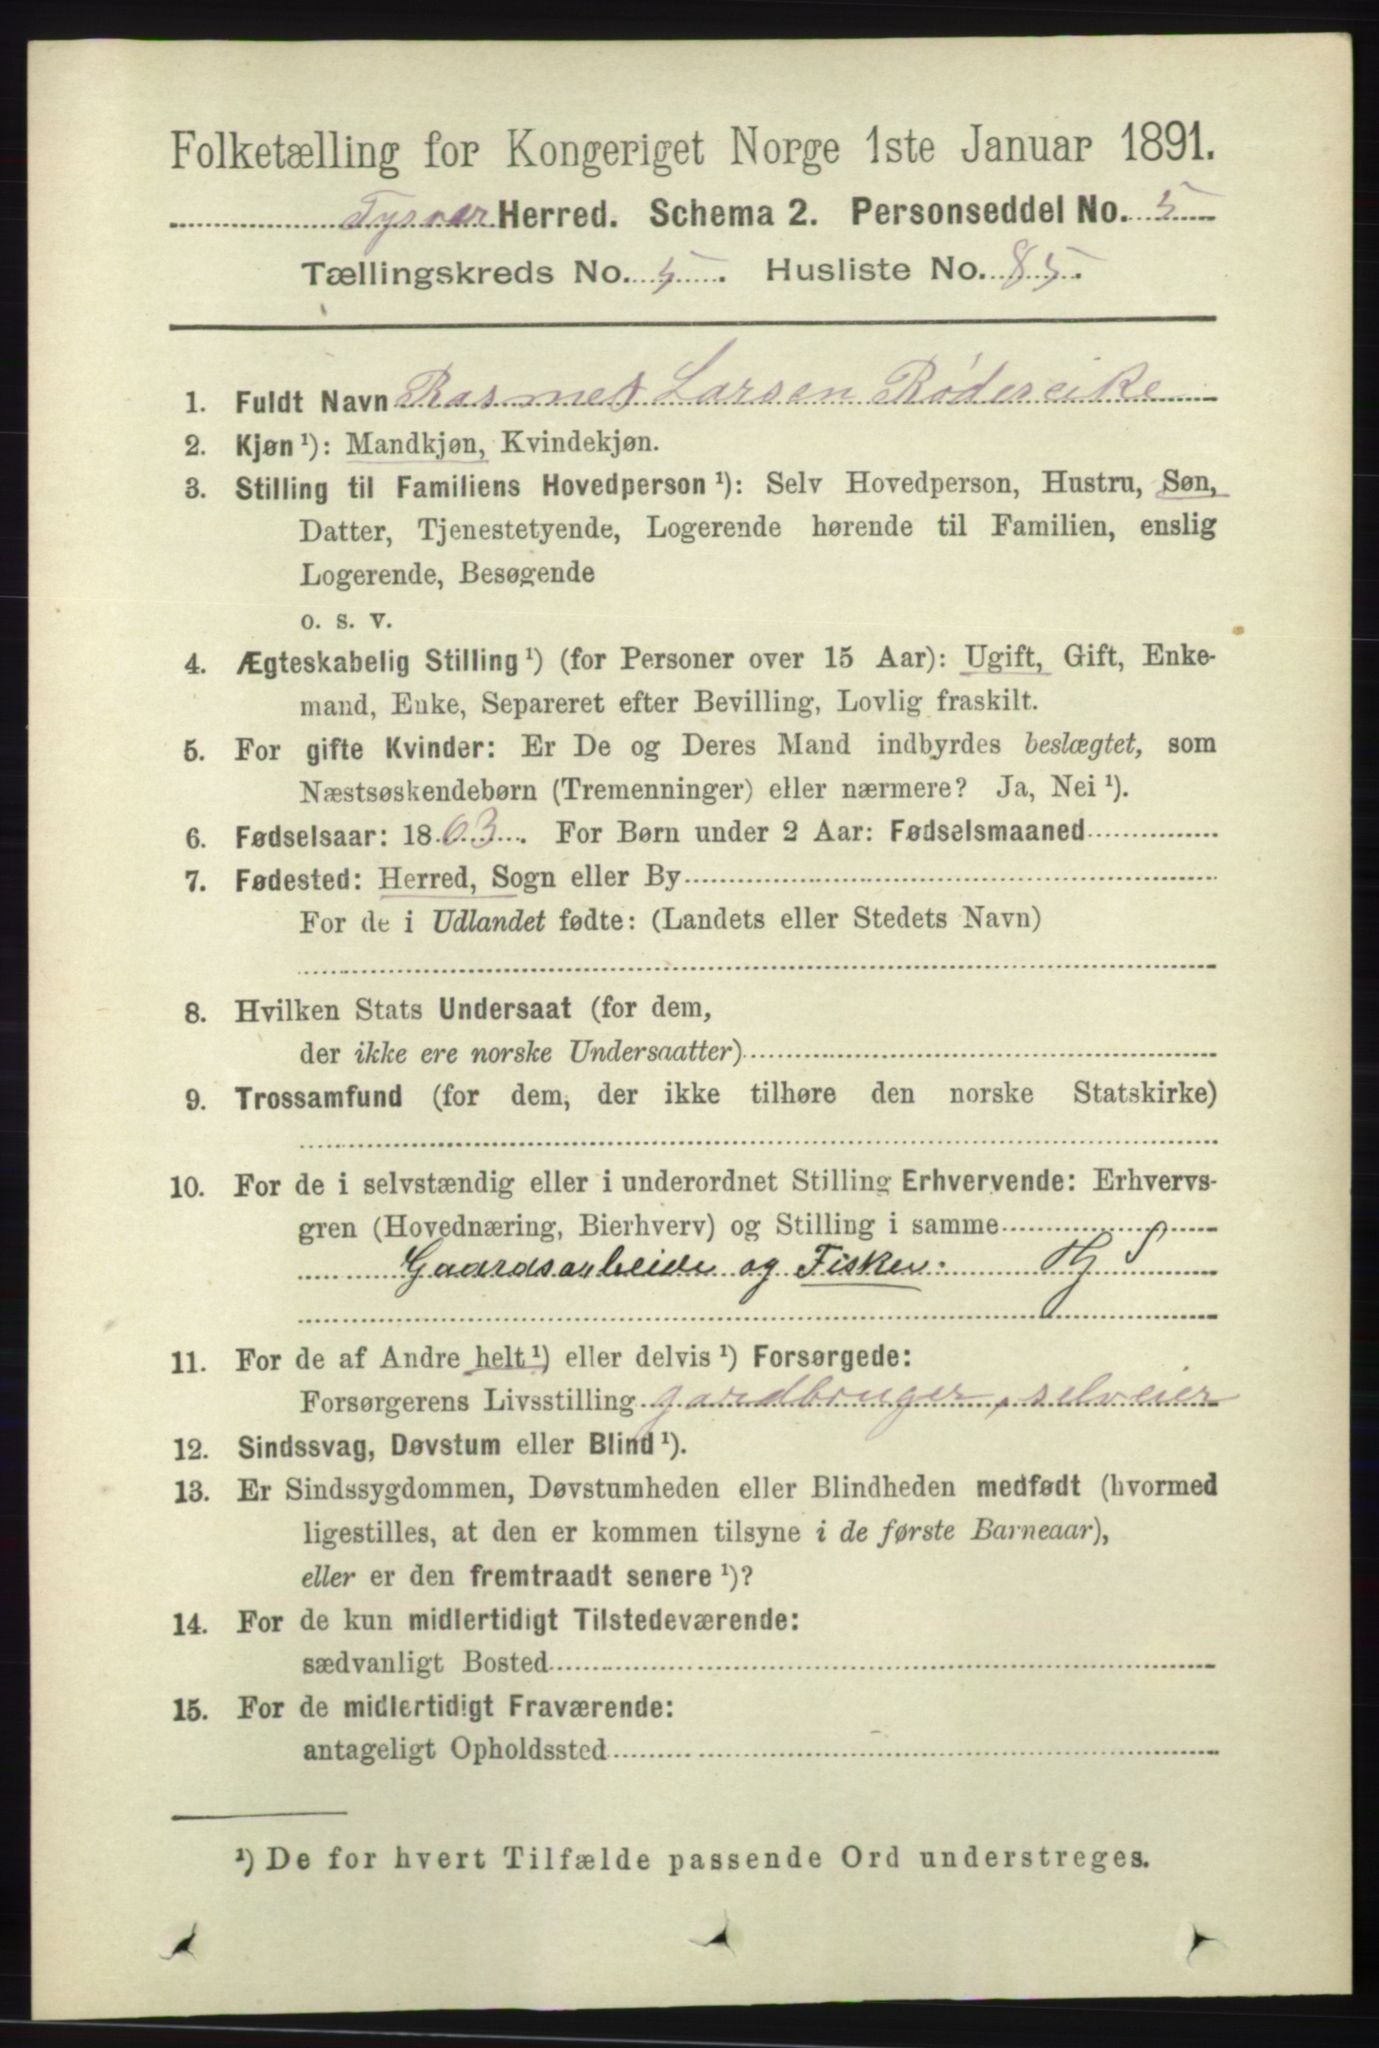 Folketælling for Kongeriget Norge 1ste Januar 1891.
Tysvær Herred. Schema 2. Personseddel No. 5
Tællingskreds No. 5. Husliste No. 85.
1. Fuldt Navn Rasmus Larsen Rødereike
2. Kjøn ¹): Mandkjøn, Kvindekjøn.
3. Stilling til Familiens Hovedperson ¹): Selv Hovedperson, Hustru, Søn,
Datter, Tjenestetyende, Logerende hørende til Familien, enslig
Logerende, Besøgende
o. s. v.
4. Ægteskabelig Stilling ¹) (for Personer over 15 Aar): Ugift, Gift, Enke-
mand, Enke, Separeret efter Bevilling, Lovlig fraskilt.
5. For gifte Kvinder: Er De og Deres Mand indbyrdes beslægtet, som
Næstsøskendebørn (Tremenninger) eller nærmere? Ja, Nei ¹).
6. Fødselsaar: 1863. For Børn under 2 Aar: Fødselsmaaned
7. Fødested: Herred, Sogn eller By
For de i Udlandet fødte: (Landets eller Stedets Navn)
8. Hvilken Stats Undersaat (for dem,
der ikke ere norske Undersaatter)
9. Trossamfund (for dem, der ikke tilhøre den norske Statskirke)
10. For de i selvstændig eller i underordnet Stilling Erhvervende: Erhvervs-
gren (Hovednæring, Bierhverv) og Stilling i samme
Gaardsarbeide og Fisker.
11. For de af Andre helt ¹) eller delvis ¹) Forsørgede:
Forsørgerens Livsstilling gardbruger, selveier
12. Sindssvag, Døvstum eller Blind ¹).
13. Er Sindssygdommen, Døvstumheden eller Blindheden medfødt (hvormed
ligestilles, at den er kommen tilsyne i de første Barneaar),
eller er den fremtraadt senere ¹)?
14. For de kun midlertidigt Tilstedeværende:
sædvanligt Bosted
15. For de midlertidigt Fraværende:
antageligt Opholdssted
¹) De for hvert Tilfælde passende Ord understreges.